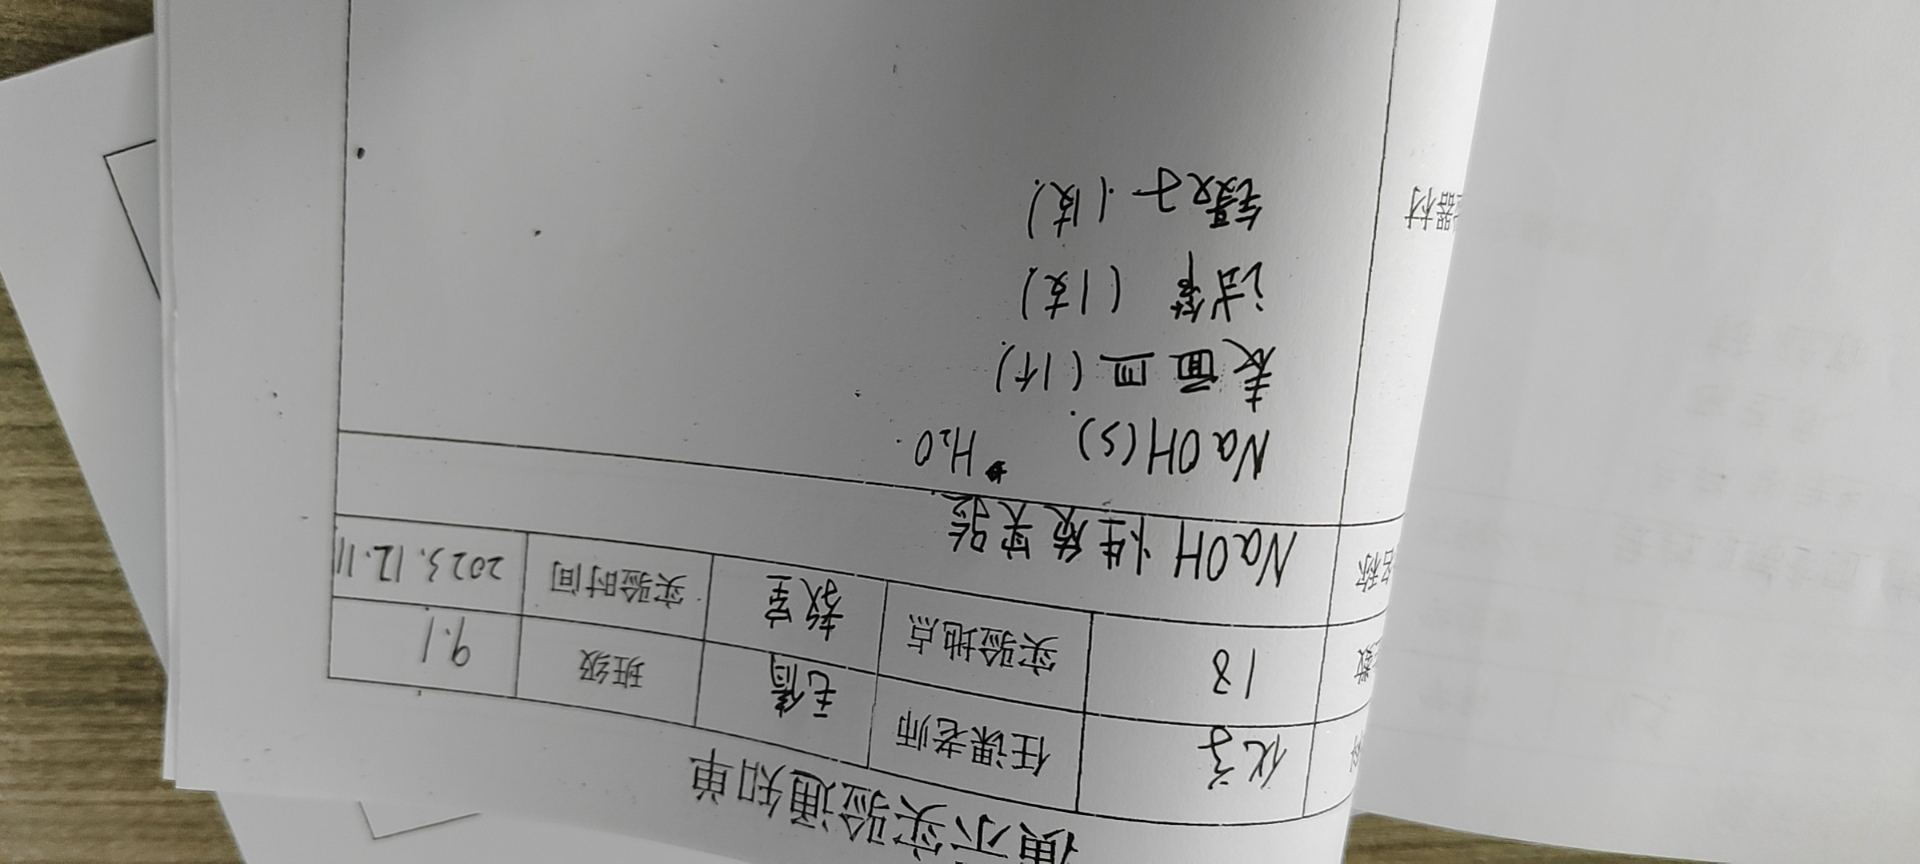 演示实验通知单
科 化学 任课老师 毛倩 班级 9.1
数 18 实验地点 教室 实验时间 2023.12.11
名称 NaOH性质实验.
器材
NaOH(s). H₂O.
表面皿(1个).
试管(1支)
镊子(1支).